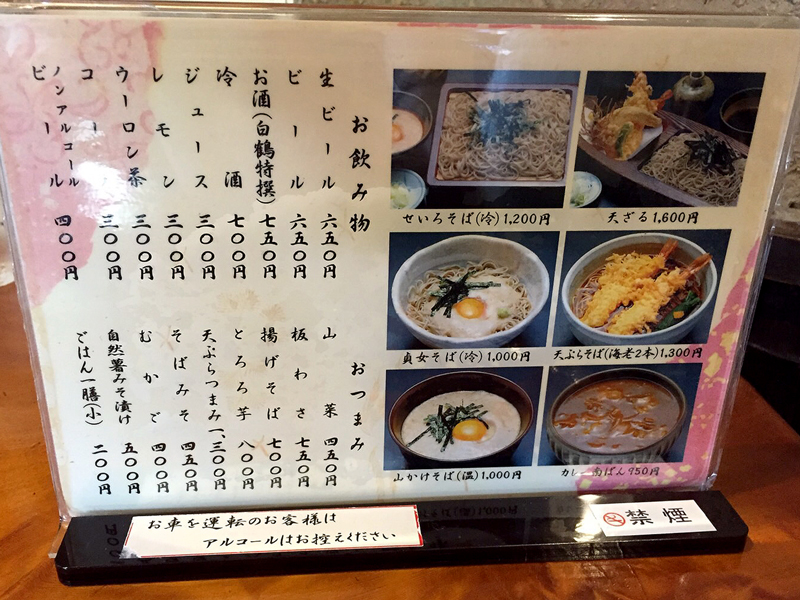 お飲み物
生ビール 六五〇円
ビール 六五〇円
お酒(白鶴特撰) 七五〇円
冷酒 七〇〇円
ジュース 三〇〇円
レモン 三〇〇円
ウーロン茶 三〇〇円
コーラ 三〇〇円
ノンアルコール
ビール 四〇〇円
おつまみ
山菜 四五〇円
板わさ 七五〇円
揚げそば 七〇〇円
とろろ芋 八〇〇円
天ぷらつまみ 一、三〇〇円
そばみそ 四五〇円
むかご 四〇〇円
自然薯みそ漬け 五〇〇円
ごはん一膳(小) 二〇〇円
せいろそば(冷) 1,200円
天ざる 1,600円
貞女そば(冷) 1,000円
天ぷらそば(海老2本) 1,300円
山かけそば(温) 1,000円
カレー南ばん 950円
お車を運転のお客様は
アルコールはお控えください
禁煙